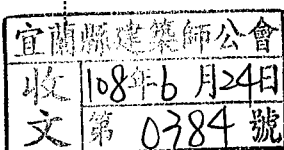 宜蘭縣建築師公會
收文
108年6月24日
第 0384 號